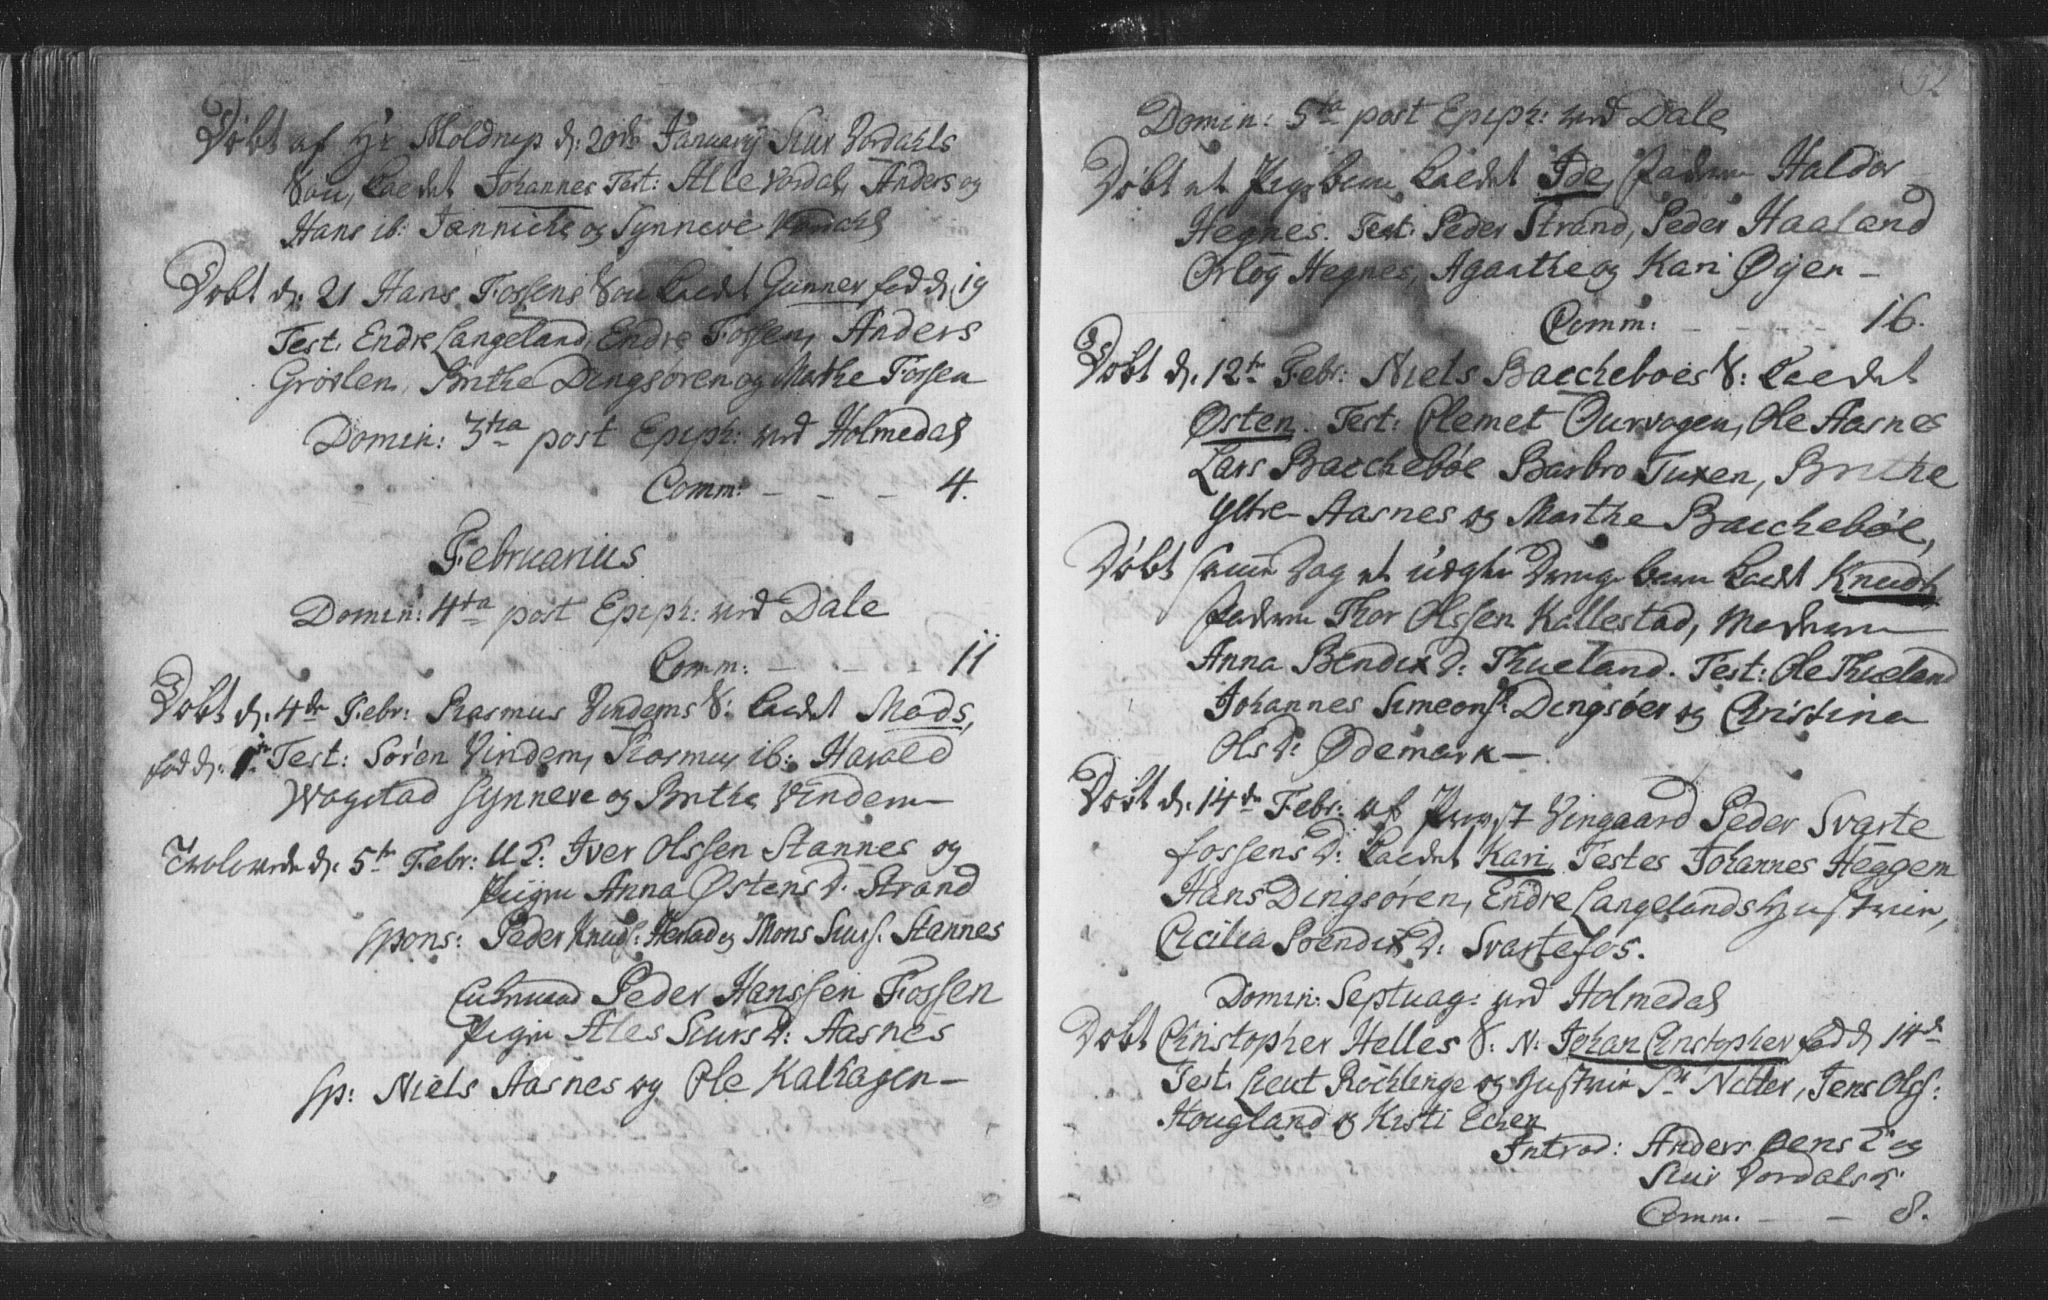 Døbt af Hr Moldrup d: 20de Januarij Siur Vordahls
Søn, kaldet Johannes Test: Alle Vordal, Anders og
Hans ib: Jannicke og Synneve Vordahl
Døbt d. 21 Hans Fossens Søn kaldet Gunner fød d. 19
Test: Endre Langeland, Endre Fossen, Anders
Grøslen, Brithe Dingsøren og Marthe Fossen
Domin: 3tia post Epiph: ved Holmedal
Comm: - - - 4.
Februarius
Domin: 4ta post Epiph: ved Dale
Comm: - - - 11
Døbt d. 4de Febr: Rasmus Vindems S: kaldet Mads,
fød d. 1te Test: Søren Vindem, Rasmus ib: Harald
Wagstad Synneve og Brithe Vindem
Trolovede d. 5te Febr: U K: Iver Olssen Stannes og
Pigen Anna Østens D. Strand
spons: Peder Knuds: Herstad og Mons Siurs: Stannes
Peder Hanssen Fossen
Pigen Ales Siurs D: Aasnes
sp: Niels Aasnes og Ole Kalhagen
52
Domin: 5ta post Epiph: ved Dale
Døbt et Pigebarn kaldet Ide, Faderen Haldor
Hegnes. Test: Peder Strand, Peder Haaland
Orlog Hegnes, Agarthe og Kari Øyen
Comm: - - - 16.
Døbt d. 12te Febr: Niels Baccheboes S: kaldet
Østen. Test: Clemet Ourvogen, Ole Aasnes
Lars Bacchebøe Barbro Tuxen, Brithe
Ytre Aasnes og Marthe Bacchebøe,
Døbt samme Dag et uægte Drenge barn kaldt Knudt,
Faderen Thor Olssen Kallestad, Moderen
Anna Bendix D: Thueland. Test: Ole Thueland
Johannes Simeons: Dingsøer og Christina
Ols D: Ødemark
Døbt d. 14de Febr: af Provst Vingaard Peder Svarte
fossens D: kaldet Kari Testes Johannes Heggem
Hans Dingsøren, Endre Langelands Hustrue,
Cicilia Bendix D: Svartefos.
Domin: Septuag: ved Holmedal
Døbt Christopher Helles S: N: Johan Christopher fød d 14de
Test: Lieut Röchlinge og Hustrue Sr Nitter, Jens Olss:
Hougland og Kirsti Echen
Introd: Anders Oens K: og
Siur Vordals K:
Comm. - - 8.